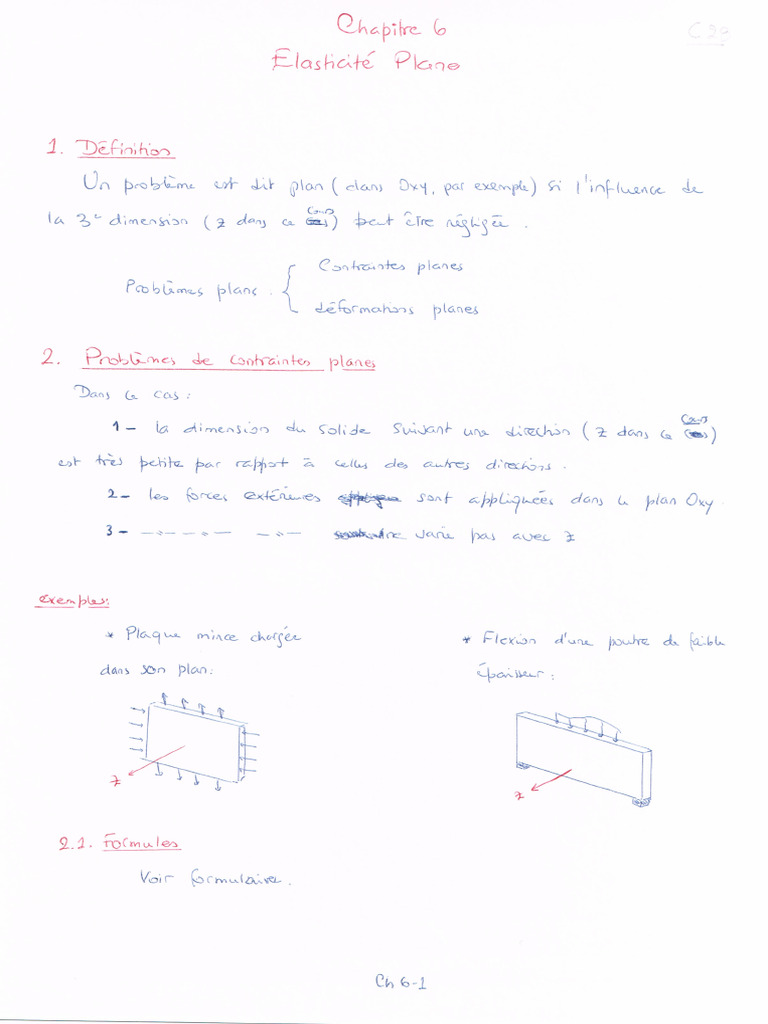 Chapitre 6
C 39
Elasticité Plane
1. Définition
Un problème est dit plan (dans Oxy, par exemple) si l'influence de
la 3e dimension (z dans ce cours) peut être négligée.
Problèmes plans. { Contraintes planes
déformations planes
2. Problèmes de contraintes planes
Dans ce cas :
1- la dimension du solide suivant une direction (z dans ce cours)
est très petite par rapport à celles des autres directions.
2- les forces extérieures sont appliquées dans le plan Oxy.
3- —"—"—"— —"— ne varie pas avec z
exemples:
* Plaque mince chargée
dans son plan:
z
* Flexion d'une poutre de faible
épaisseur:
z
2.1. Formules
Voir formulaire.
Ch 6-1